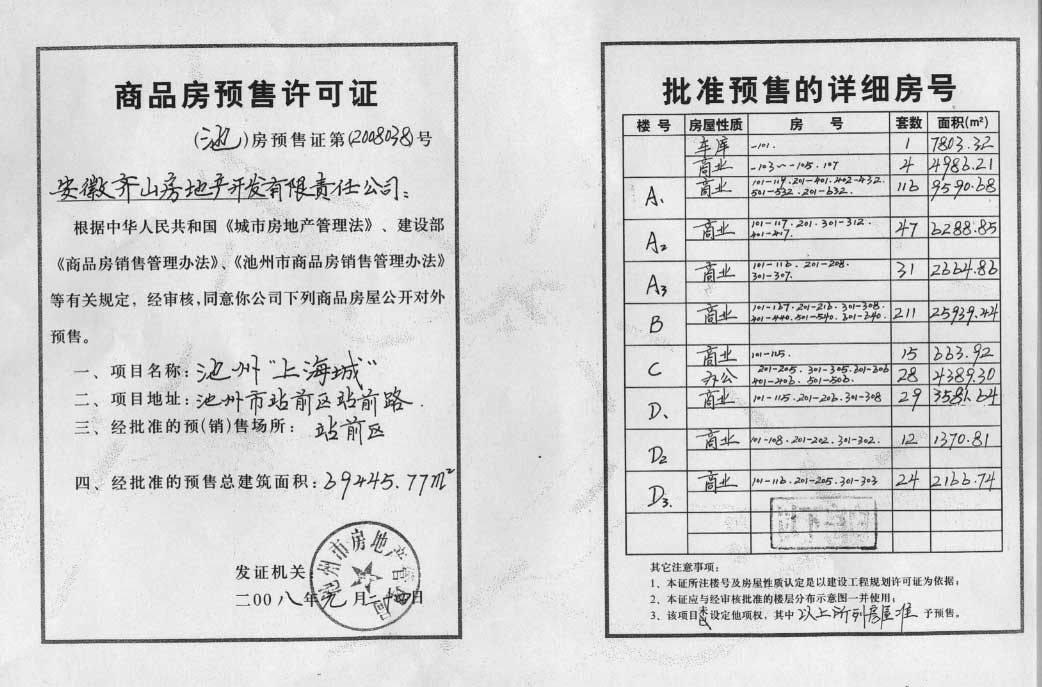 商品房预售许可证
(池)房预售证第(2008038)号
安徽齐山房地产开发有限责任公司:
根据中华人民共和国《城市房地产管理法》、建设部
《商品房销售管理办法》、《池州市商品房销售管理办法》
等有关规定，经审核,同意你公司下列商品房屋公开对外
预售。
一、项目名称:池州"上海城"
二、项目地址:池州市站前区站前路.
三、经批准的预(销)售场所: 站前区
四、经批准的预售总建筑面积:69445.77m²
池州市房地产管理局
发证机关
二00八年元月二十四日
批准预售的详细房号
楼 号 房屋性质 房 号 套数 面积(m²)
车库 -101. 1 7803.32
商业 -103~-105.107 4 4986.21
A1 商业 101-119.201-401.402-432. 116 9590.68
501-532.201-632.
A2 商业 101-117.201.301-312. 47 6288.85
401-417.
A3 商业 101-116.201-208. 31 2664.86
301-307.
B 商业 101-167.201-216.301-308. 211 25939.44
401-440.501-540.601-640.
C 商业 101-115. 15 663.92
办公 201-205.301-305.601-606 28 4389.30
401-406.501-506.
D1 商业 101-115.201-206.301-308 29 3581.64
D2 商业 101-108.201-202.301-302. 12 1370.81
D3. 商业 101-116.201-205.301-303 24 2166.74
其它注意事项:
1、本证所注楼号及房屋性质认定是以建设工程规划许可证为依据;
2、本证应与经审核批准的楼层分布示意图一并使用;
3、该项目未设定他项权，其中以上所列房屋准予预售。